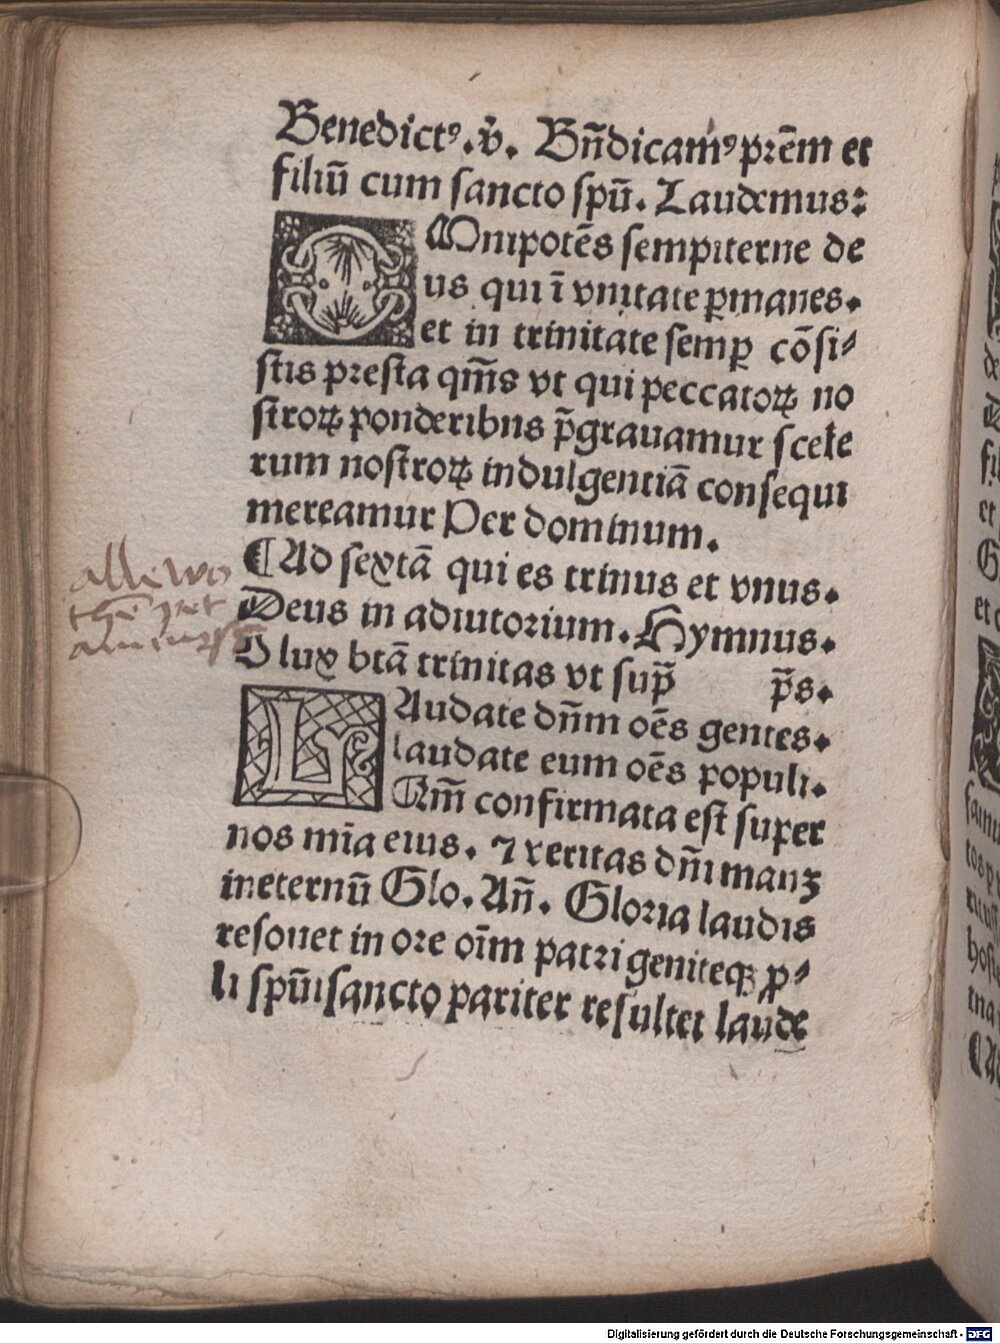 Benedictꝰ .v̄. Bn̄dicamꝰ prēm et
filiū cum sancto spū. Laudemus:
OMnipotēs sempiterne de
us qui ī vnitate ꝑmanes.
et in trinitate semꝑ cōsi⸗
stis presta qm̄s vt qui peccatoꝝ no
stroꝝ ponderibns p̄grauamur scele
rum nostroꝝ indulgentiā consequi
mereamur Per dominum.
¶ Ad sextā qui es trinus et vnus.
Deus in adiutorium. Hymnus.
O lux btā trinitas vt sup̄ p̄s.
LAudate dn̄m oēs gentes.
laudate eum oēs populi.
Qm̄ confirmata est super
nos mīa eius. ⁊ veritas dn̄i manꝫ
ineternū Glo. An̄. Gloria laudis
resonet in ore oīm patri geniteqꝫ ꝓ⸗
li spūisancto pariter resultet laude
alle wo
Digitalisierung gefördert durch die Deutsche Forschungsgemeinschaft - DFG